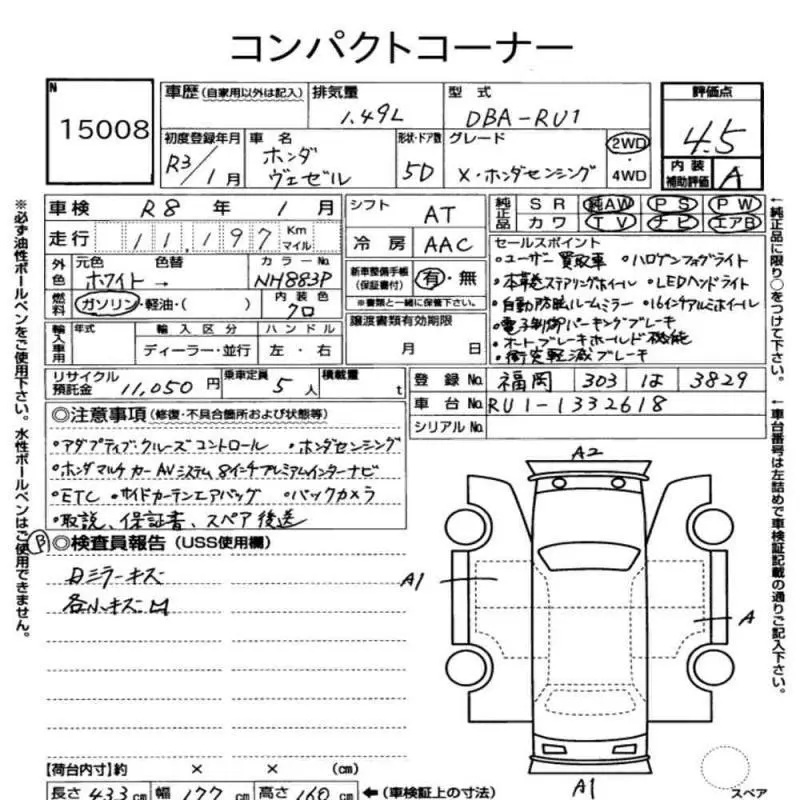 コンパクトコーナー
N
15008
車歴(自家用以外は記入)
排気量
1.49L
型式
DBA-RU1
評価点
4.5
初度登録年月
R3/1月
車名
ホンダ
ヴェゼル
形状・ドア数
5D
グレード
X・ホンダセンシング
2WD
・
4WD
内装
補助評価
A
車検 R8年 1月
走行 11,197 Km
マイル
外装 元色 色替 カラーNo.
ホワイト→ NH883P
燃料 ガソリン・軽油・( ) 内装色
クロ
輸入車用 年式 輸入区分 ハンドル
ディーラー・並行 左・右
シフト AT
冷房 AAC
新車整備手帳
(保証書付) 有・無
※書類と一緒に保管下さい。
譲渡書類有効期限
月 日
純正品 SR 純AW PS PW
カワ TV ナビ エアB
セールスポイント
・ユーザー買取車 ・ハロゲンフォグライト
・本革巻ステアリングホイール ・LEDヘッドライト
・自動防眩ルームミラー ・16インチアルミホイール
・電子制御パーキングブレーキ
・オートブレーキホールド機能
・衝突軽減ブレーキ
リサイクル
預託金 11,050円
乗車定員 5人
積載量 t
登録No. 福岡 303 は 3829
車台No. RU1-1332618
シリアルNo.
◎注意事項(修復・不具合箇所および状態等)
・アダプティブ・クルーズコントロール ・ホンダセンシング
・ホンダマルチカーAVシステム 8インチプレミアムインターナビ
・ETC ・サイドカーテンエアバッグ ・バックカメラ
・取説、保証書、スペア後送
◎検査員報告(USS使用欄)
各小キズ凹
A2
A1
A
A1
スペア
【荷台内寸】約 × × (cm)
長さ 433cm 幅 177cm 高さ 160cm ←(車検証上の寸法)
※必ず油性ボールペンをご使用下さい。水性ボールペンはご使用できません。
←純正品に限り○をつけて下さい。
←車台番号は左詰めで車検証記載の通りご記入下さい。